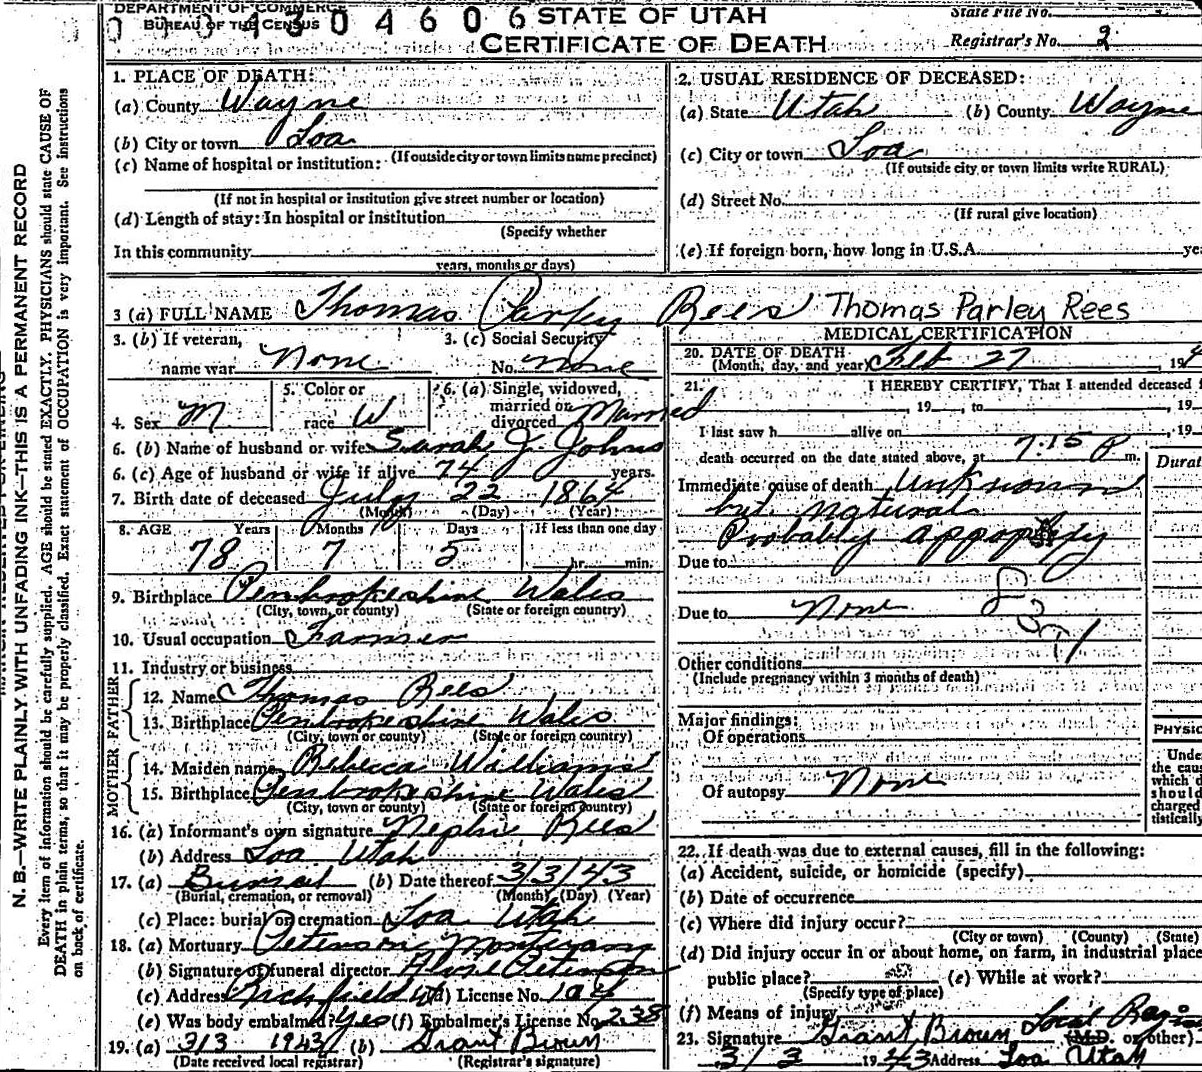 DEPARTMENT OF COMMERCE
BUREAU OF THE CENSUS
STATE OF UTAH
CERTIFICATE OF DEATH
State File No.
Registrar's No. 2
1. PLACE OF DEATH:
(a) County Wayne
(b) City or town Loa
(If outside city or town limits name precinct)
(c) Name of hospital or institution:
(If not in hospital or institution give street number or location)
(d) Length of stay: In hospital or institution
(Specify whether
In this community
years, months or days)
2. USUAL RESIDENCE OF DECEASED:
(a) State Utah (b) County Wayne
(c) City or town Loa
(If outside city or town limits write RURAL)
(d) Street No.
(If rural give location)
(e) If foreign born, how long in U.S.A.
3 (a) FULL NAME Thomas Parley Rees Thomas Parley Rees
3. (b) If veteran, 3. (c) Social Security
name war None No. None
4. Sex M 5. Color or race W 6. (a) Single, widowed, married or divorced Married
6. (b) Name of husband or wife Sarah J. Johns
6. (c) Age of husband or wife if alive 74 years.
7. Birth date of deceased July 22 1864
(Month) (Day) (Year)
8. AGE Years Months Days If less than one day
78 7 5 hr. min.
9. Birthplace Pembrokeshire Wales
(City, town, or county) (State or foreign country)
10. Usual occupation Farmer
11. Industry or business
FATHER
12. Name Thomas Rees
13. Birthplace Pembrokeshire Wales
(City, town or county) (State or foreign country)
MOTHER
14. Maiden name Rebecca Williams
15. Birthplace Pembrokeshire Wales
(City, town or county) (State or foreign country)
16. (a) Informant's own signature Nephi Rees
(b) Address Loa Utah
17. (a) Burial (b) Date thereof 3/3/43
(Burial, cremation, or removal) (Month) (Day) (Year)
(c) Place: burial or cremation Loa Utah
18. (a) Mortuary Peterson Mortuary
(b) Signature of funeral director Peterson
(c) Address Richfield Ut (d) License No. 104
(e) Was body embalmed? Yes (f) Embalmer's License No. 238
19. (a) 3/3 1943 (b) Grant Brown
(Date received local registrar) (Registrar's signature)
MEDICAL CERTIFICATION
20. DATE OF DEATH
(Month, day, and year) Feb 27 194
21. I HEREBY CERTIFY, That I attended deceased f
, 19 , to , 19
I last saw h alive on , 19
death occurred on the date stated above, at 7:15 P m.
Immediate cause of death Unknown
but natural
Probably appoplexy
Durat
Due to
Due to None
83
Other conditions
(Include pregnancy within 3 months of death)
Major findings:
Of operations
Of autopsy None
PHYSIC
Unde
the caus
which d
should
charged
tistically
22. If death was due to external causes, fill in the following:
(a) Accident, suicide, or homicide (specify)
(b) Date of occurrence
(c) Where did injury occur?
(City or town) (County) (State)
(d) Did injury occur in or about home, on farm, in industrial place
public place? (e) While at work?
(Specify type of place)
(f) Means of injury
23. Signature Grant Brown Local Regis
(M.D. or other)
3/3 1943 Address Loa Utah
N. B.—WRITE PLAINLY WITH UNFADING INK—THIS IS A PERMANENT RECORD
Every item of information should be carefully supplied. AGE should be stated EXACTLY. PHYSICIANS should state CAUSE OF
DEATH in plain terms, so that it may be properly classified. Exact statement of OCCUPATION is very important. See instructions
on back of certificate.